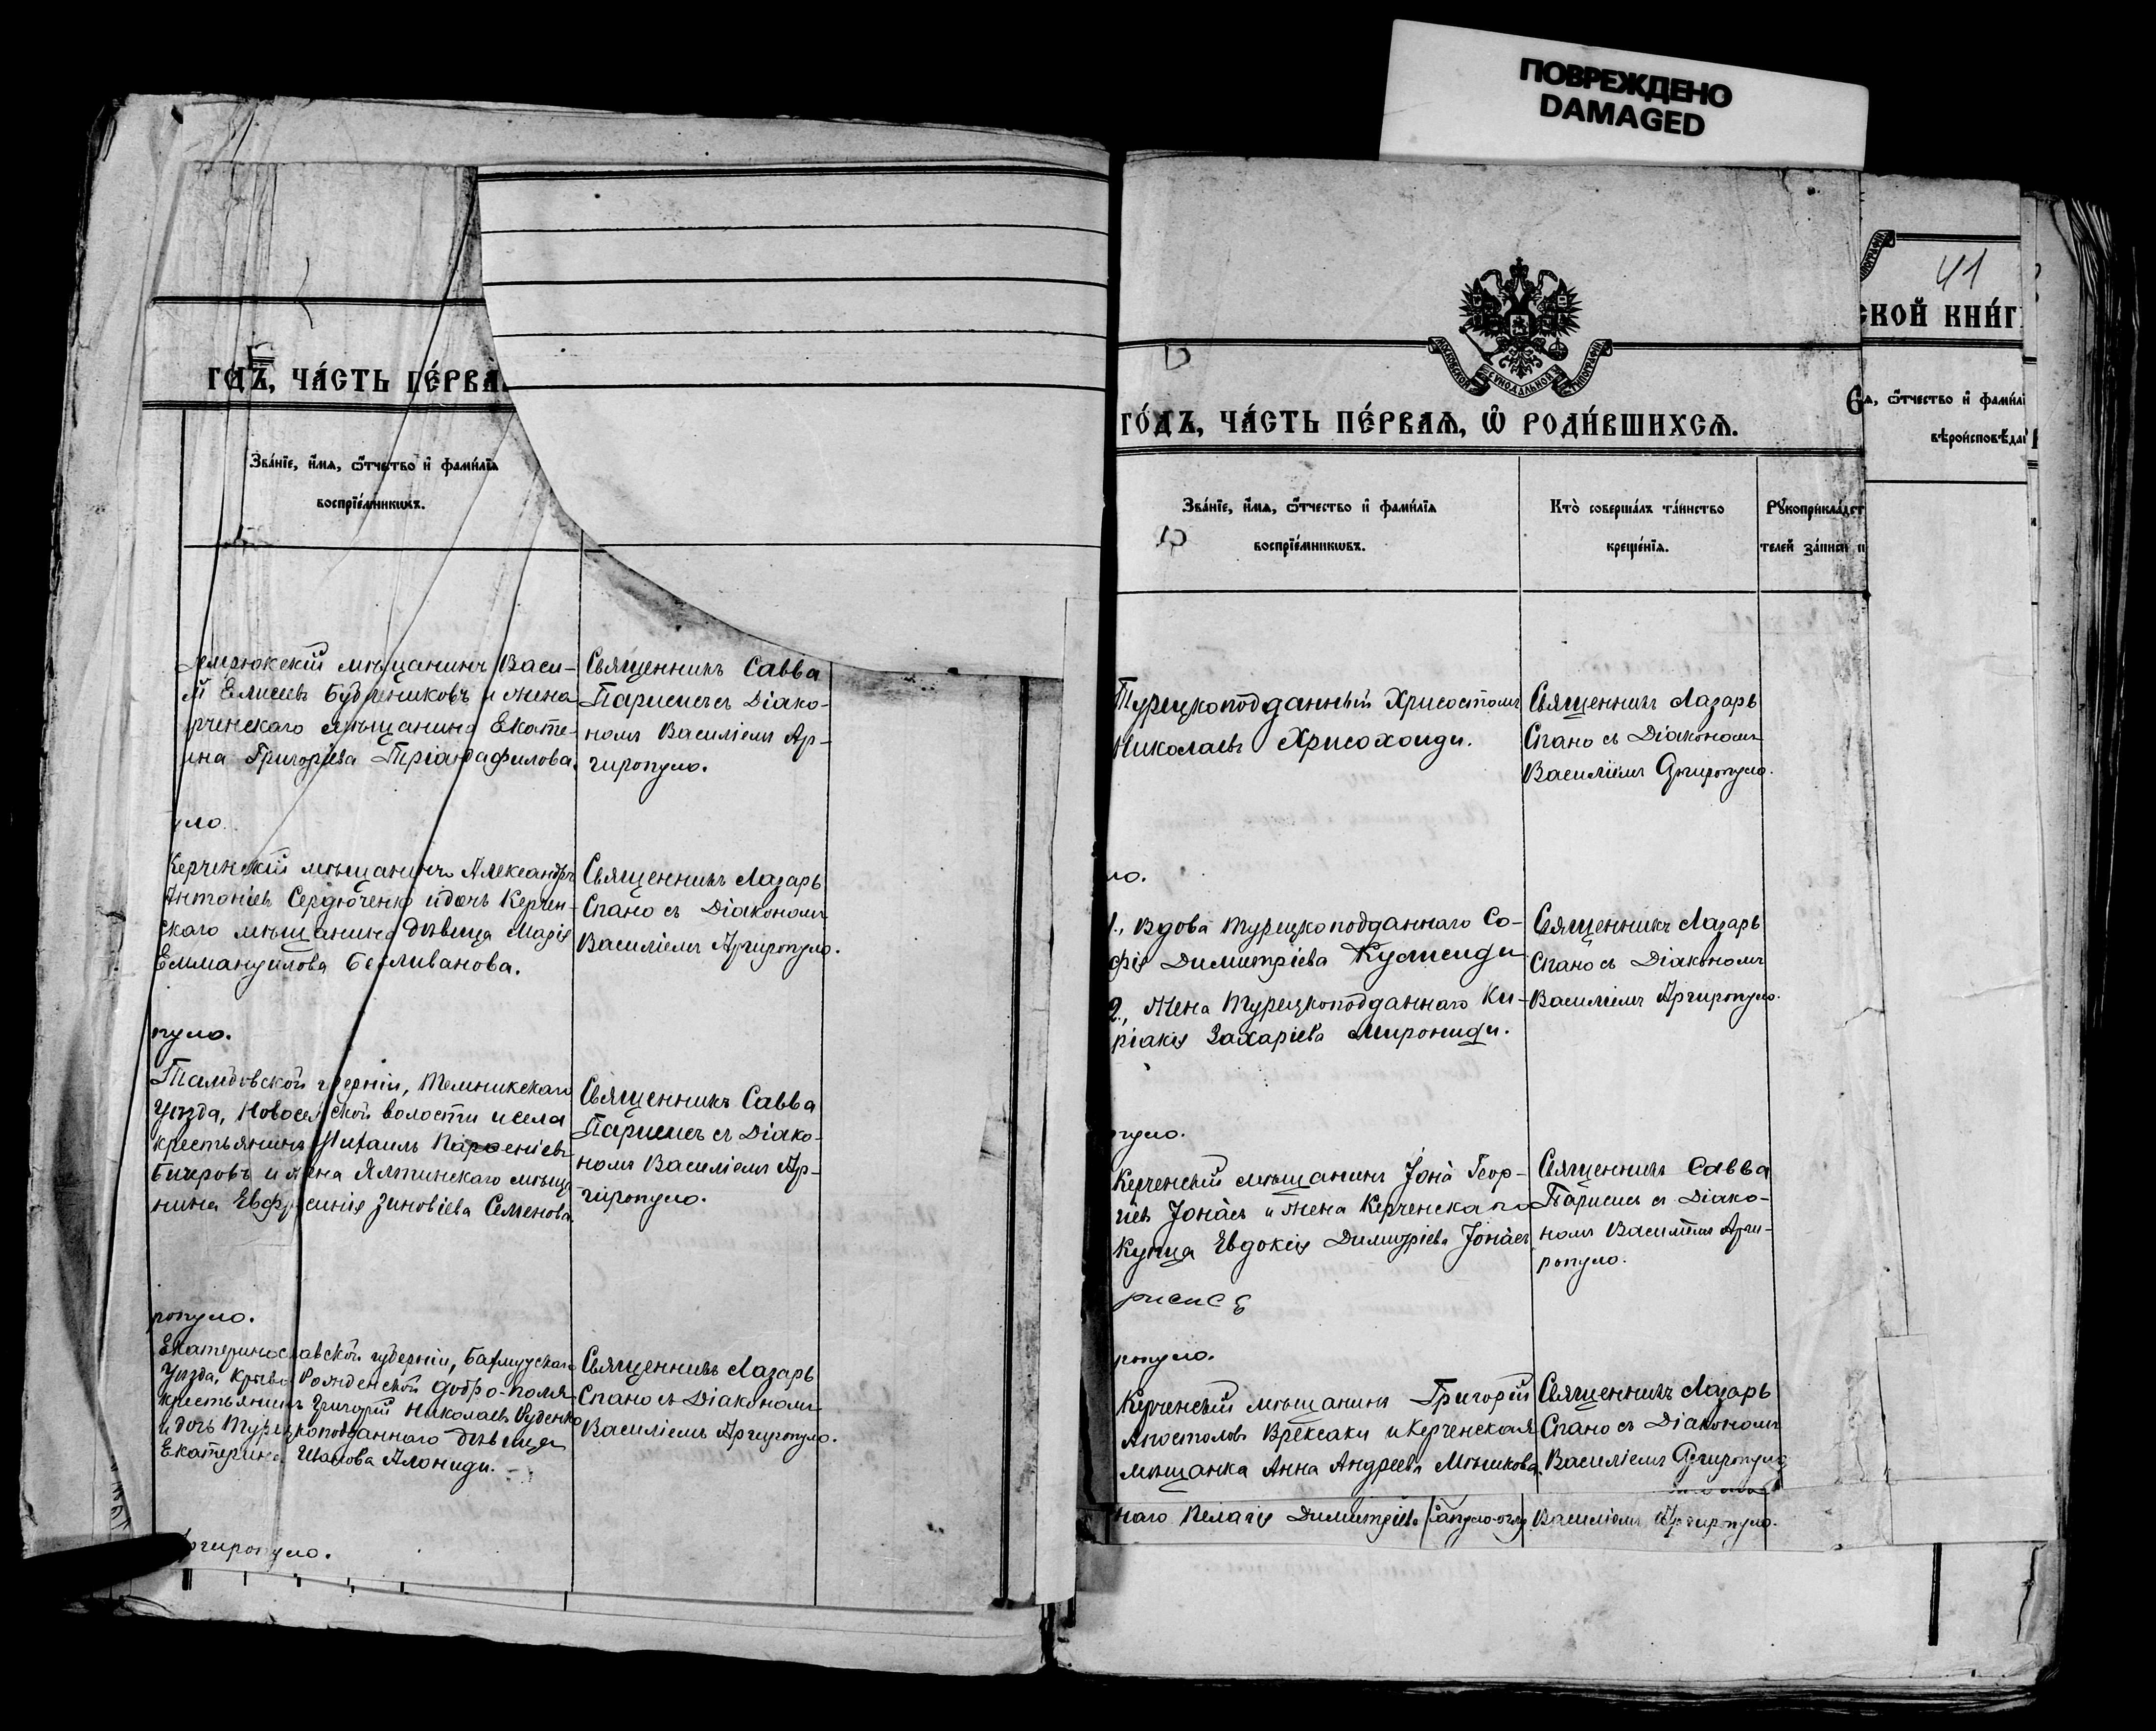 ПОВРЕЖДЕНО
DAMAGED
ГОДЪ, ЧА́СТЬ ПЕ́РВА
Зва́нїе, и҆́мѧ, ѻ҆́тчество и҆ фами́лїѧ
воспрїе́мникѡвъ.
Темрюкскій мѣщанинъ Васи-
й Елисеевъ Бубликовъ и жена
рченскаго мѣщанина Екате-
ина Григоріева Тріандафилова.
Священникъ Савва
Парисисъ съ Діако-
номъ Василіемъ Ар-
гиропуло.
уло
Керченскій мѣщанинъ Александръ
Антоніевъ Сердюченко и дочь Керчен-
скаго мѣщанина дѣвица Марія
Еммануилова Бесливанова.
Священникъ Лазарь
Спано съ Діакономъ
Василіемъ Аргиропуло.
пуло.
Тамбовской губерніи, Темникскаго
уѣзда, Новосельской волости и села
крестьянинъ Михаилъ Пароеніевъ
Бичеровъ и жена Ялтинскаго мѣща
нина Евфросинія Зиновіева Семенова.
Священникъ Савва
Парисисъ съ Діако-
номъ Василіемъ Ар-
гиропуло.
ропуло.
Екатеринославской губерніи, Бахмутскаго
уѣзда, Добро-поля-
крестьянинъ Григорій Николаевъ Руденко
и дочь Турецкоподданнаго дѣвица
Екатерина Иванова Алониди.
Священникъ Лазарь
Спано съ Діакономъ
Василіемъ Аргиропуло.
ргиропуло.
МОСКОВСКОЙ СѴНОДАЛЬНОЙ ТИПОГРАФІИ
ГО́ДЪ, ЧА́СТЬ ПЕ́РВАѦ, Ѡ҆ РОДИ́ВШИХСѦ.
Зва́нїе, и҆́мѧ, ѻ҆́тчество и҆ фами́лїѧ
воспрїе́мникѡвъ.
Кто̀ соверша́лъ та́инство
креще́нїѧ.
Рꙋкоприкла́дст
телей за́писи п
Турецкоподданный Хрисостомъ
Николаевъ Хрисохоиди.
Священникъ Лазарь
Спано съ Діакономъ
Василіемъ Аргиропуло.
ло.
1., Вдова Турецкоподданнаго Со-
фія Димитріева Кусиниди
2., Жена Турецкоподданнаго Ки-
ріакія Захаріева Мирониди.
Священникъ Лазарь
Спано съ Діакономъ
Василіемъ Аргиропуло.
пуло.
Керченскій мѣщанинъ Іона Геор-
гіевъ Іонасъ и жена Керченскаго
Купца Евдокія Димитріева Іонасъ
Священникъ Савва
Парисисъ съ Діако-
номъ Василіемъ Арги-
ропуло.
рисисъ
ропуло.
Керченскій мѣщанинъ Григорій
Апостоловъ Врексаки и Керченская
мѣщанка Анна Андреева Мошкова.
Священникъ Лазарь
Спано съ Діакономъ
Василіемъ Аргиропуло
наго Пелагія Димитріева
Василіемъ Аргиропуло.
41
СКОЙ КНИ́Г
ѧ, ѻ҆́тчество и҆ фами́лї
вѣроисповѣда